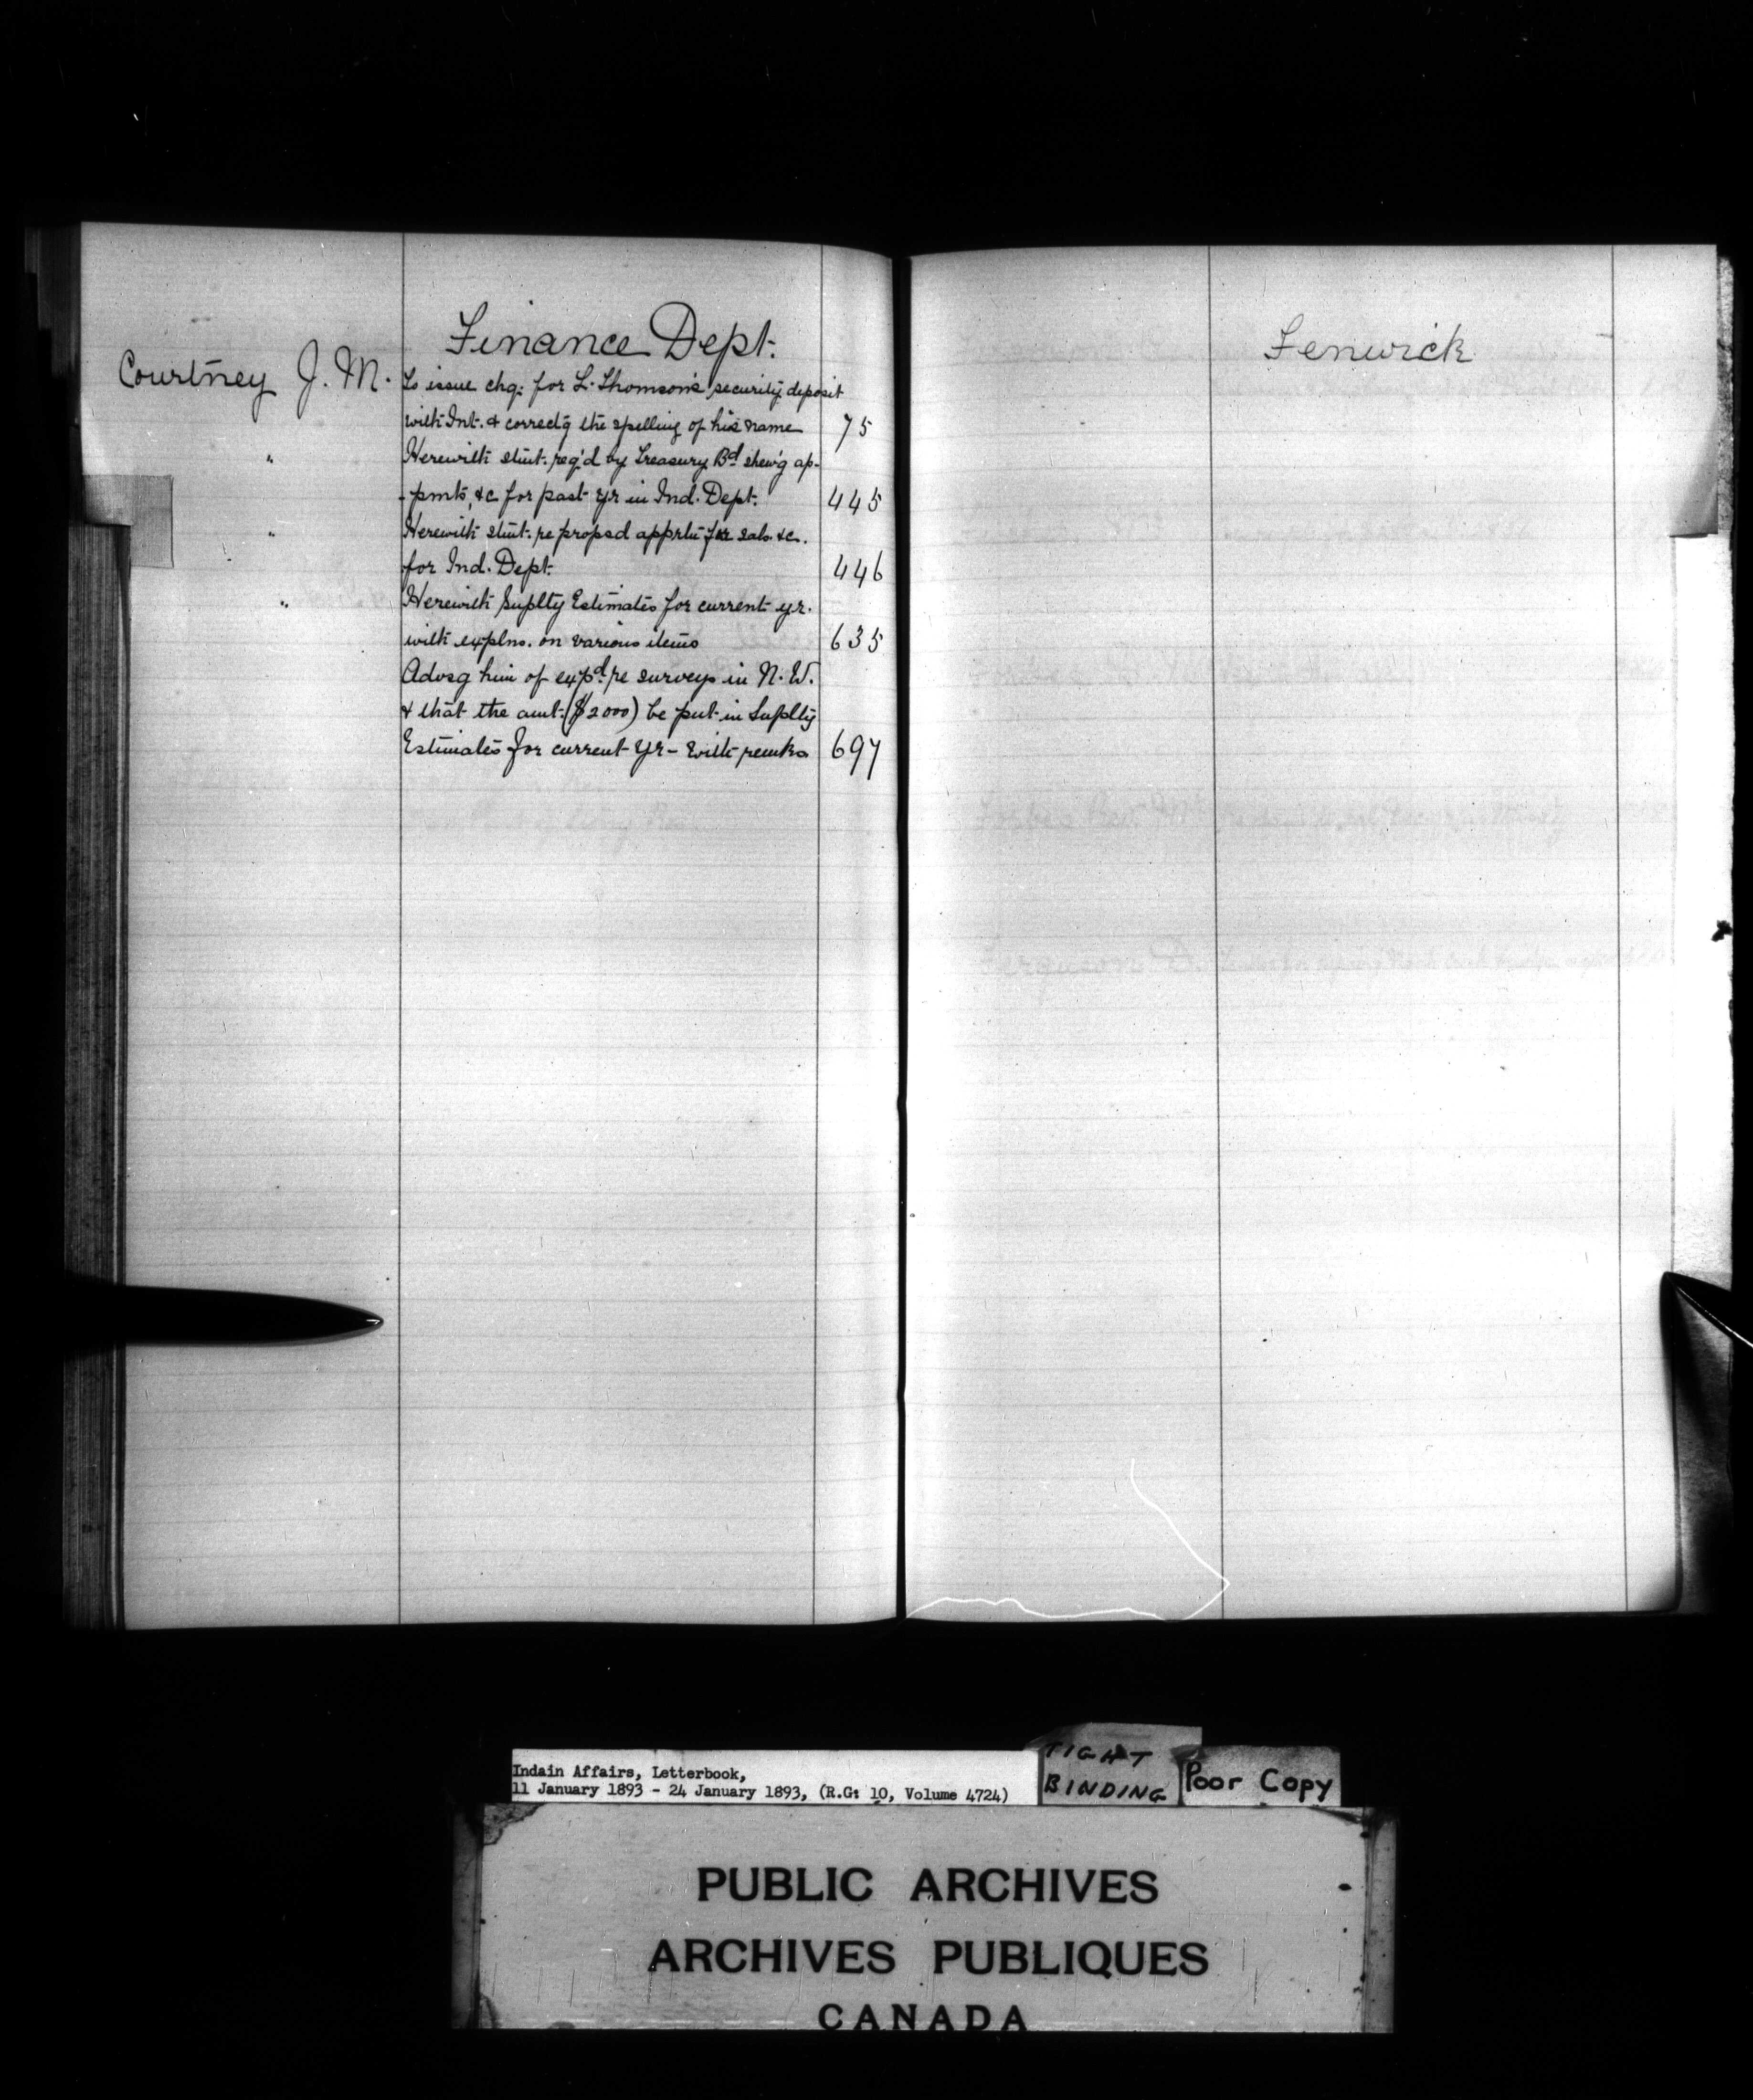 Finance Dept.
Courtney J. M. To issue chq. for L. Thomson's security deposit
with Int. & correct'g the spelling of his name 75
" Herewith stmt. req'd by Treasury Bd shew'g ap-
-pmts, &c for past yr in Ind. Dept. 445
" Herewith stmt. re propsd apprtn for sals. &c.
for Ind. Dept. 446
" Herewith Suplty Estimates for current yr.
with explns. on various items 635
Advsg him of expd re surveys in N. W.
& that the amt. ($2000) be put in Suplty
Estimates for current Yr - with remks 697
Fenwick
Indain Affairs, Letterbook,
11 January 1893 - 24 January 1893, (R.G: 10, Volume 4724)
TIGHT
BINDING
Poor Copy
PUBLIC ARCHIVES
ARCHIVES PUBLIQUES
CANADA